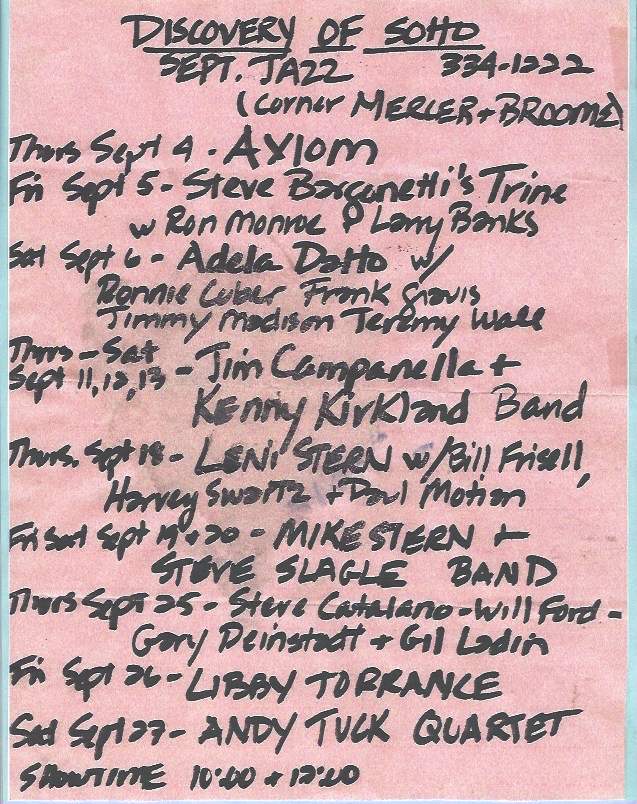 DISCOVERY OF SOHO
SEPT. JAZZ 334-1222
(Corner MERCER + BROOME)
Thurs Sept 4 - AXIOM
Fri Sept 5 - Steve Barganetti's Trine
w Ron Monroe & Larry Banks
Sat Sept 6 - Adela Datto w/
Ronnie Cuber Frank Gravis
Jimmy Madison Jeremy Wall
Thurs - Sat
Sept 11, 12, 13 - Jim Campanella +
Kenny Kirkland Band
Thurs. Sept 18 - LENI STERN w/Bill Frisell,
Harvey Swartz + Paul Motian
Fri Sat Sept 19 + 20 - MIKE STERN +
STEVE SLAGLE BAND
Thurs Sept 25 - Steve Catalano - Will Ford -
Gary Deinstadt + Gil Ladin
Fri Sept 26 - LIBBY TORRANCE
Sat Sept 27 - ANDY TUCK QUARTET
SHOWTIME 10:00 + 12:00